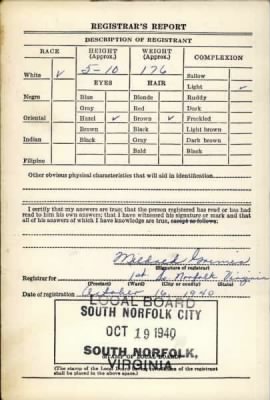 REGISTRAR'S REPORT
DESCRIPTION OF REGISTRANT
RACE HEIGHT (Approx.) WEIGHT (Approx.) COMPLEXION
White ✓ 5-10 176 Sallow
EYES HAIR Light ✓
Negro Blue Blonde Ruddy
Gray Red Dark
Oriental Hazel ✓ Brown ✓ Freckled
Brown Black Light brown
Indian Black Gray Dark brown
Bald Black
Filipino
Other obvious physical characteristics that will aid in identification
I certify that my answers are true; that the person registered has read or has had
read to him his own answers; that I have witnessed his signature or mark and that
all of his answers of which I have knowledge are true, except as follows:
Mildred
(Signature of registrar)
Registrar for 1st So Norfolk Virginia
(Precinct) (Ward) (City or county) (State)
Date of registration October 16, 1940
LOCAL BOARD
SOUTH NORFOLK CITY
OCT 19 1940
SOUTH NORFOLK,
VIRGINIA
(The stamp of the Local Board
shall be placed in the above space.)